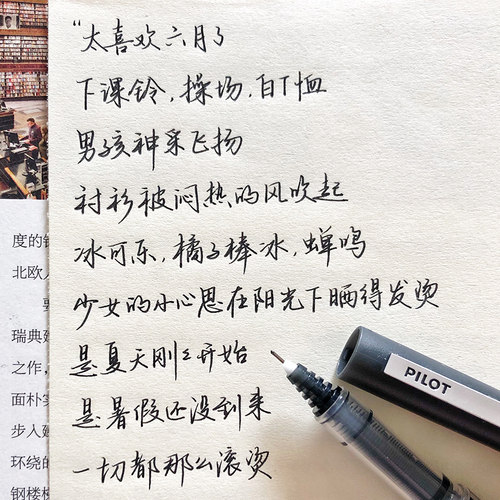 “太喜欢六月了
下课铃,操场,白T恤
男孩神采飞扬
衬衫被闷热的风吹起
冰可乐,橘子棒冰,蝉鸣
少女的小心思在阳光下晒得发烫
是夏天刚刚开始
是暑假还没到来
一切都那么滚烫
PILOT
度的
北欧
瑞典
之作,
面朴
步人
环绕的
钢楼